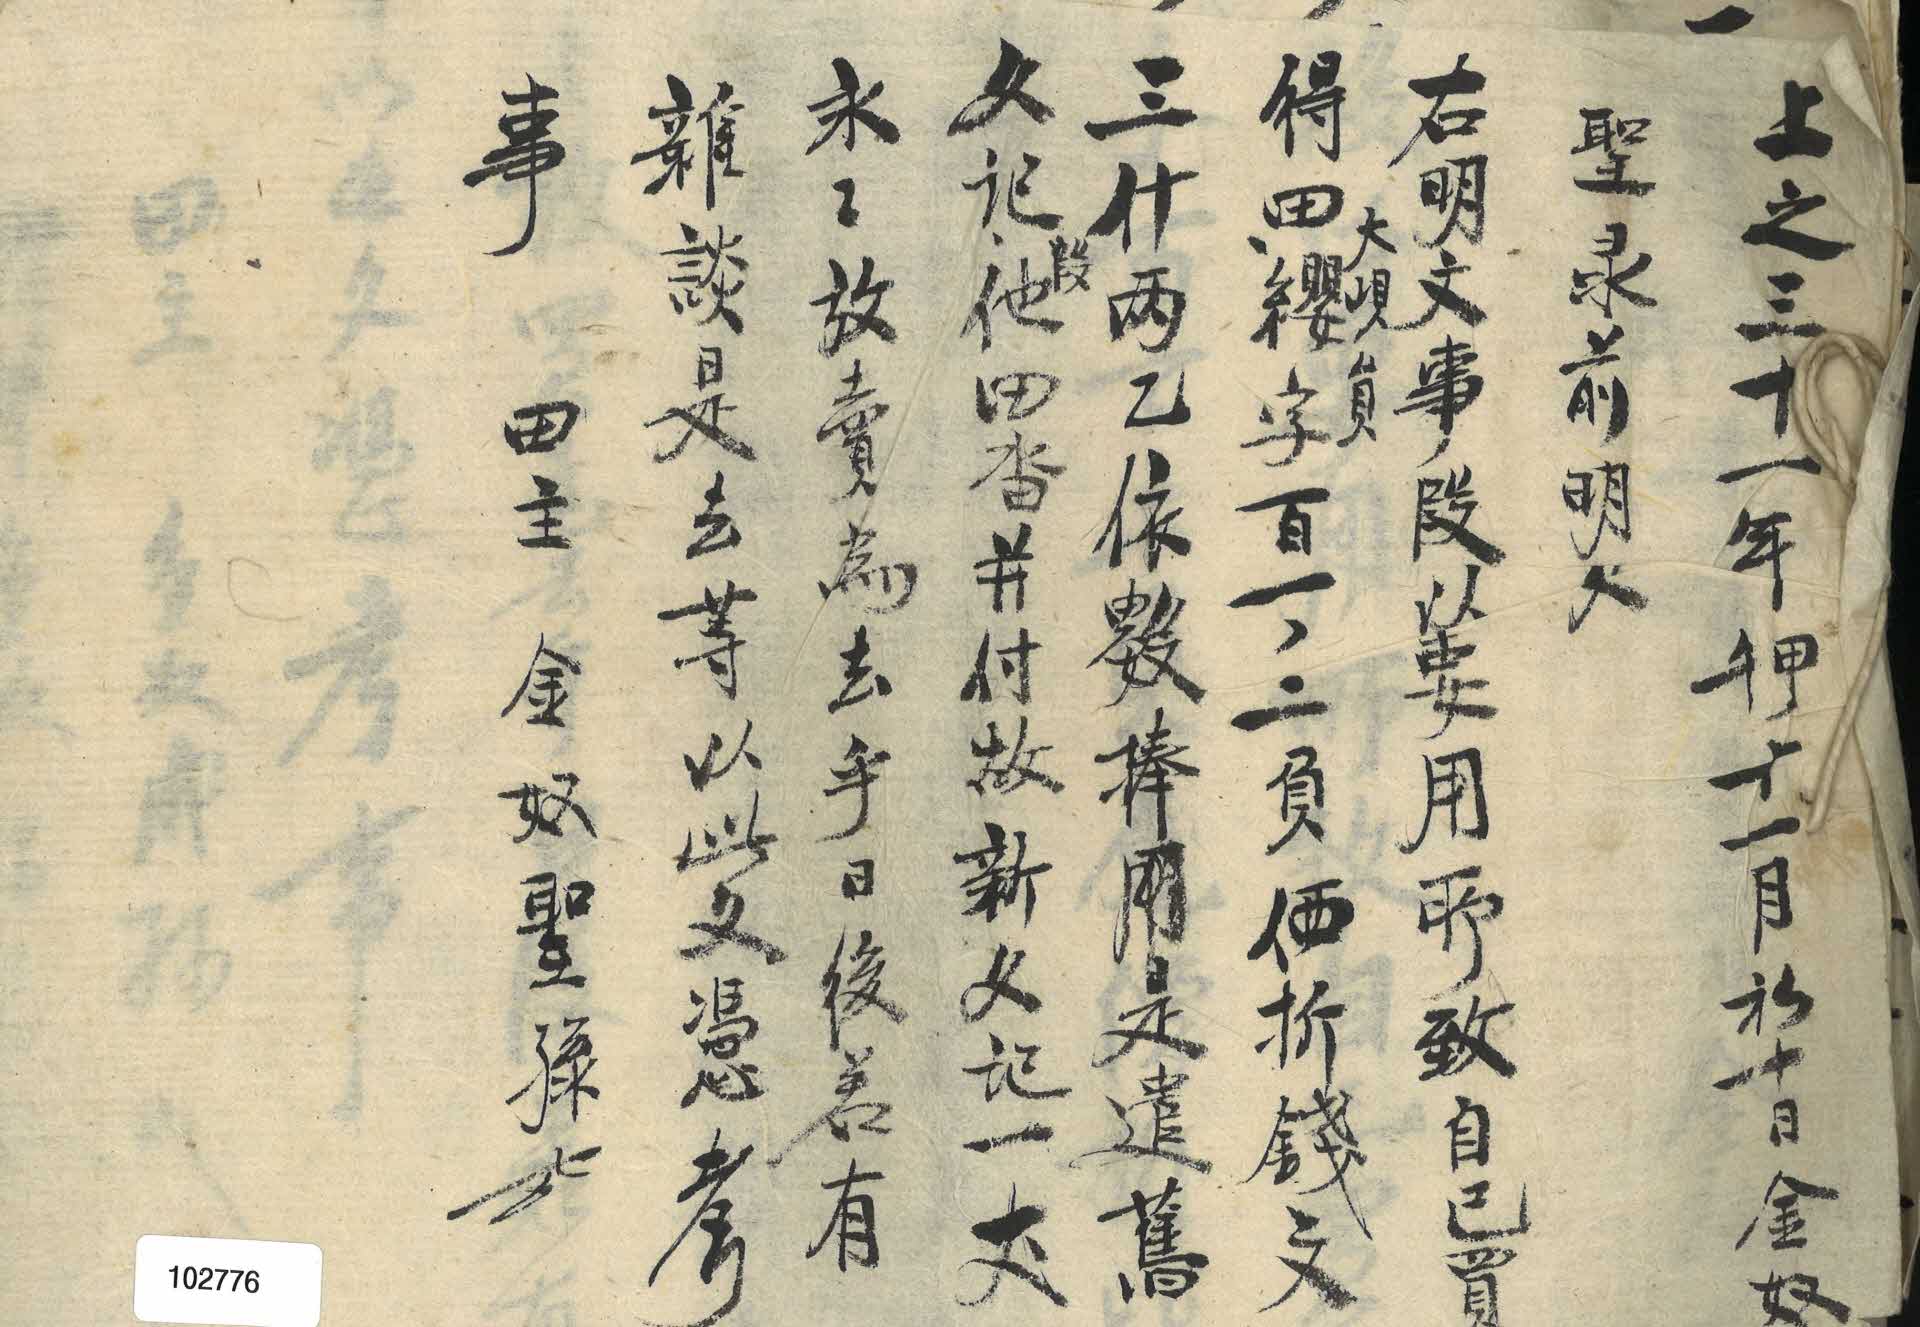 上之三十一年甲午十一月初十日金奴
聖录前明文
右明文事段以要用所致自己買
得田纓字百一丶二負価折錢文
大峴員
三什兩乙依數捧用是遣舊
文記他田畓幷付故新文記一丈
段
永々放賣為去乎日後若有
雜談是去等以此文憑考
事
田主 金奴聖孫
102776